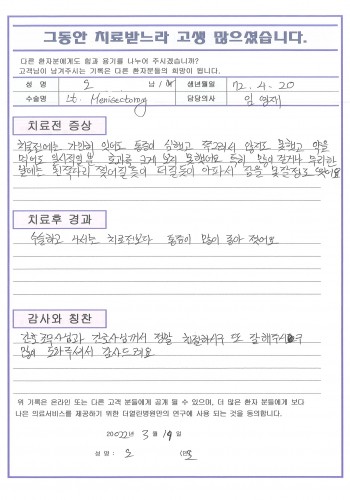 그동안 치료받느라 고생 많으셨습니다.
다른 환자분에게도 힘과 용기를 나누어 주시겠습니까?
고객님이 남겨주시는 기록은 다른 환자분들의 희망이 됩니다.
성 명 오 남/ 생년월일 72. 4. 20
수술명 Lt. Menisectomy 담당의사 임 영재
치료전 증상
치료전에는 가만히 있어도 통증이 심했고 쭈그려서 앉지도 못했고 약을
먹어도 일시적일뿐 효과를 크게 보지 못했어요 특히 많이 걷거나 무리한
날에는 찢어질듯이 아파서 잠을 못잘정도 였어요
치료후 경과
수술하고 나서는 치료전보다 통증이 많이 좋아 졌어요
감사와 칭찬
간호조무사님과 간호사님께서 정말 친절하시구 또 잘해주시구
많이 도와주셔서 감사드려요
위 기록은 온라인 또는 다른 고객 분들에게 공개 될 수 있으며, 더 많은 환자 분들에게 보다
나은 의료서비스를 제공하기 위한 더열린병원만의 연구에 사용 되는 것을 동의합니다.
2022년 3월 19일
성 명 : 오